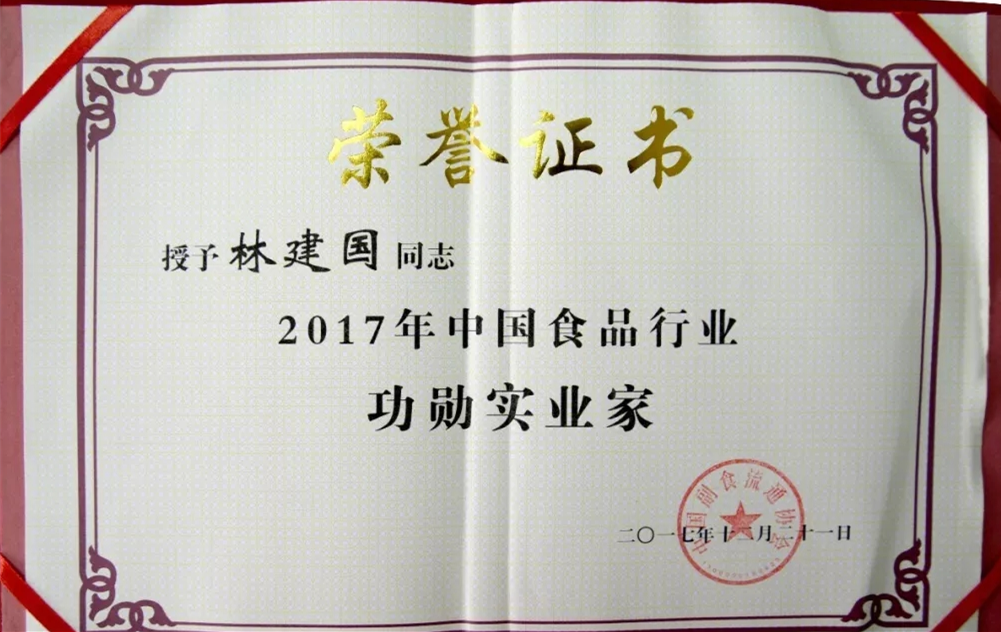 荣誉证书
授予林建国同志
2017年中国食品行业
功勋实业家
中国副食流通协会
二〇一七年十二月二十一日